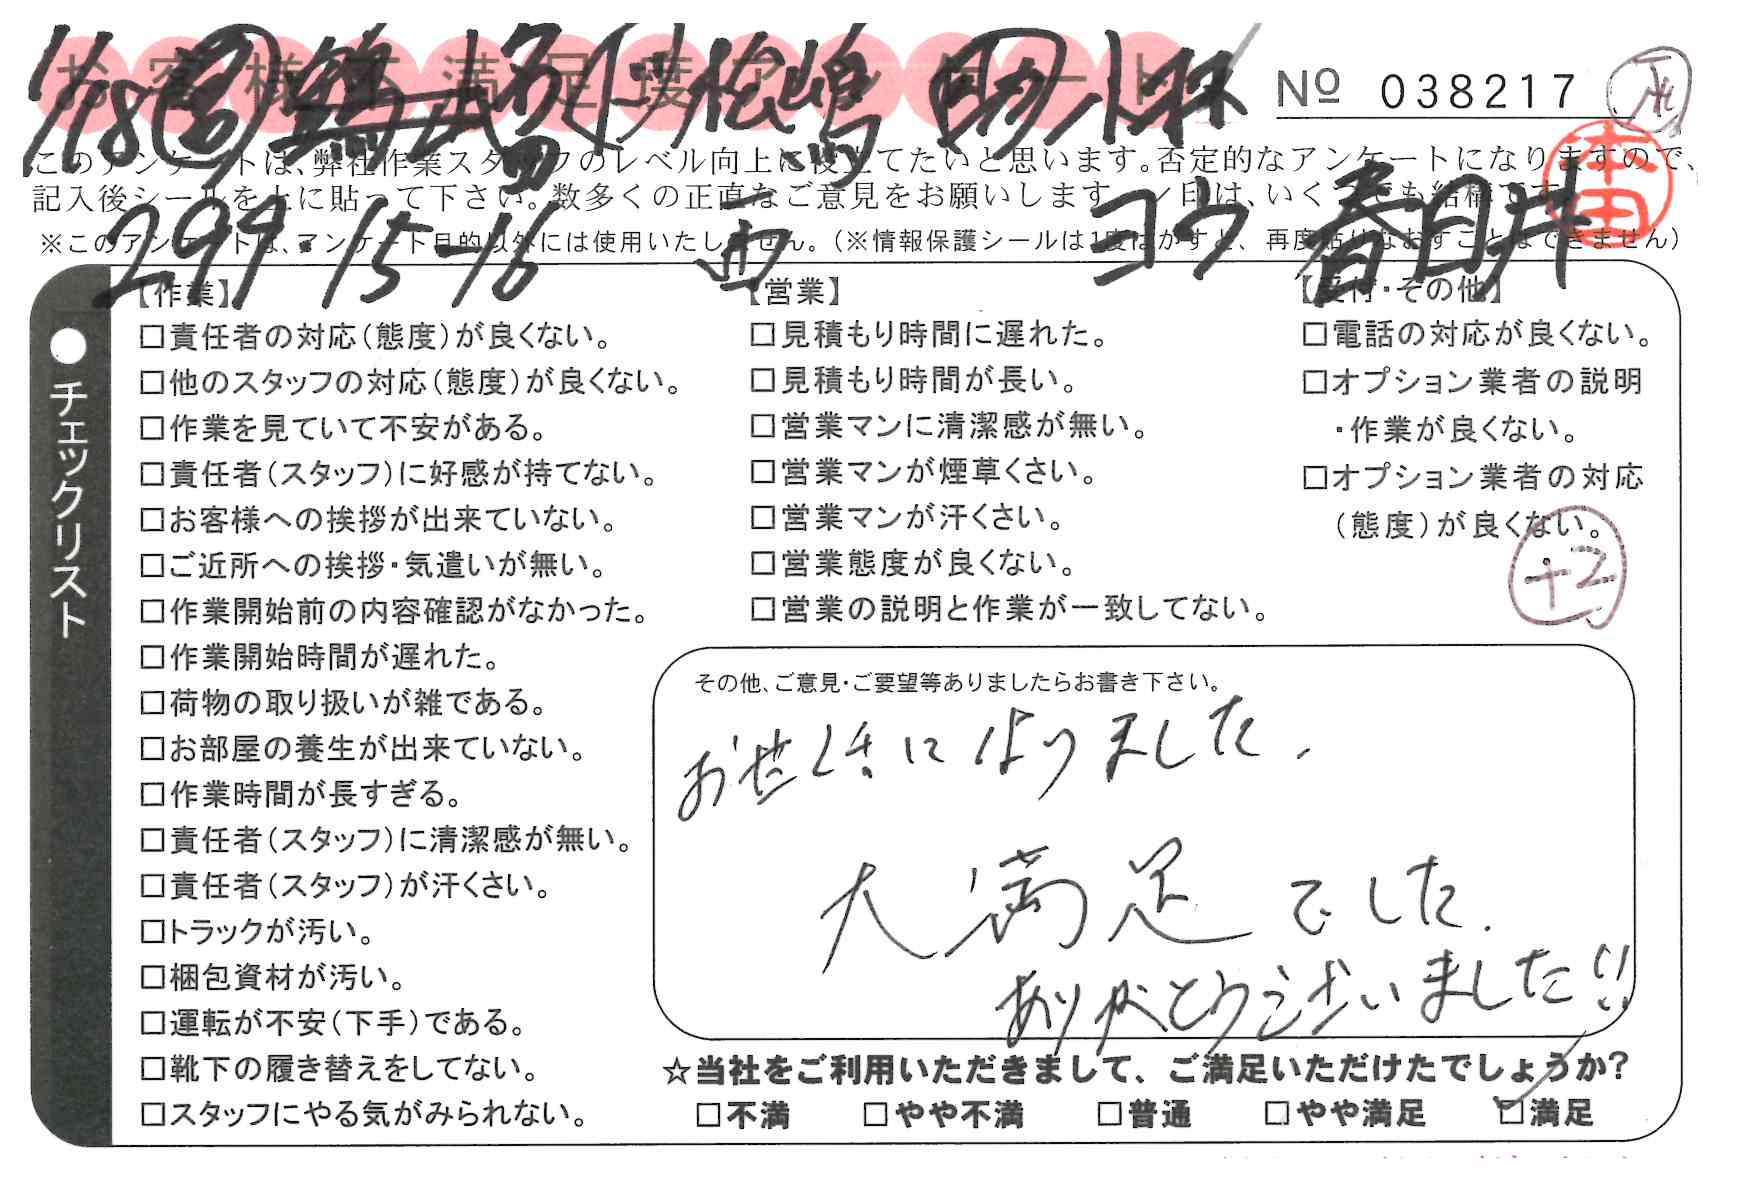 お客様不満足度アンケート
No 038217
1/18
松嶋 小林
本田
このアンケートは、弊社作業スタッフのレベル向上に役立てたいと思います。否定的なアンケートになりますので、
記入後シールを上に貼って下さい。数多くの正直なご意見をお願いします。✓印は、いくつでも結構です。
※このアンケートは、アンケート目的以外には使用いたしません。(※情報保護シールは1度はがすと、再度貼りなおすことはできません)
299 15-16 西 ヨウ 春日井
●チェックリスト
【作業】
□責任者の対応(態度)が良くない。
□他のスタッフの対応(態度)が良くない。
□作業を見ていて不安がある。
□責任者(スタッフ)に好感が持てない。
□お客様への挨拶が出来ていない。
□ご近所への挨拶・気遣いが無い。
□作業開始前の内容確認がなかった。
□作業開始時間が遅れた。
□荷物の取り扱いが雑である。
□お部屋の養生が出来ていない。
□作業時間が長すぎる。
□責任者(スタッフ)に清潔感が無い。
□責任者(スタッフ)が汗くさい。
□トラックが汚い。
□梱包資材が汚い。
□運転が不安(下手)である。
□靴下の履き替えをしてない。
□スタッフにやる気がみられない。
【営業】
□見積もり時間に遅れた。
□見積もり時間が長い。
□営業マンに清潔感が無い。
□営業マンが煙草くさい。
□営業マンが汗くさい。
□営業態度が良くない。
□営業の説明と作業が一致してない。
【受付・その他】
□電話の対応が良くない。
□オプション業者の説明
・作業が良くない。
□オプション業者の対応
(態度)が良くない。
+2
その他、ご意見・ご要望等ありましたらお書き下さい。
お世くきになりました、
大満足でした.
ありがとうございました!!
☆当社をご利用いただきまして、ご満足いただけたでしょうか?
□不満 □やや不満 □普通 □やや満足 ☑満足